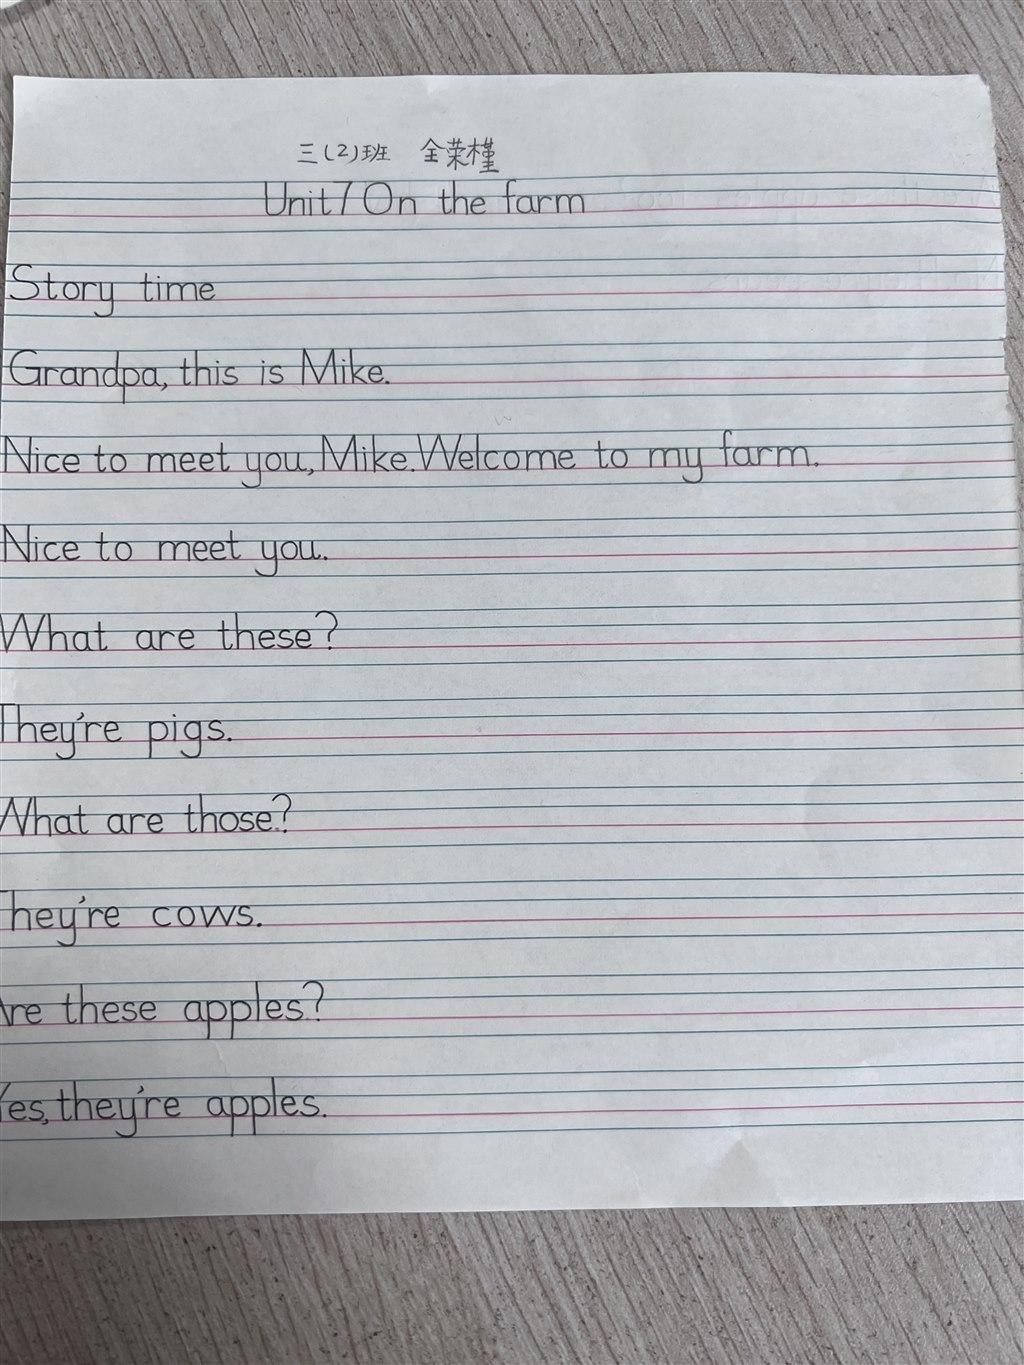 三(2)班 全荣槿
Unit 7 On the farm
Story time
Grandpa, this is Mike.
Nice to meet you, Mike. Welcome to my farm.
Nice to meet you.
What are these?
They're pigs.
What are those?
They're cows.
Are these apples?
Yes, they're apples.